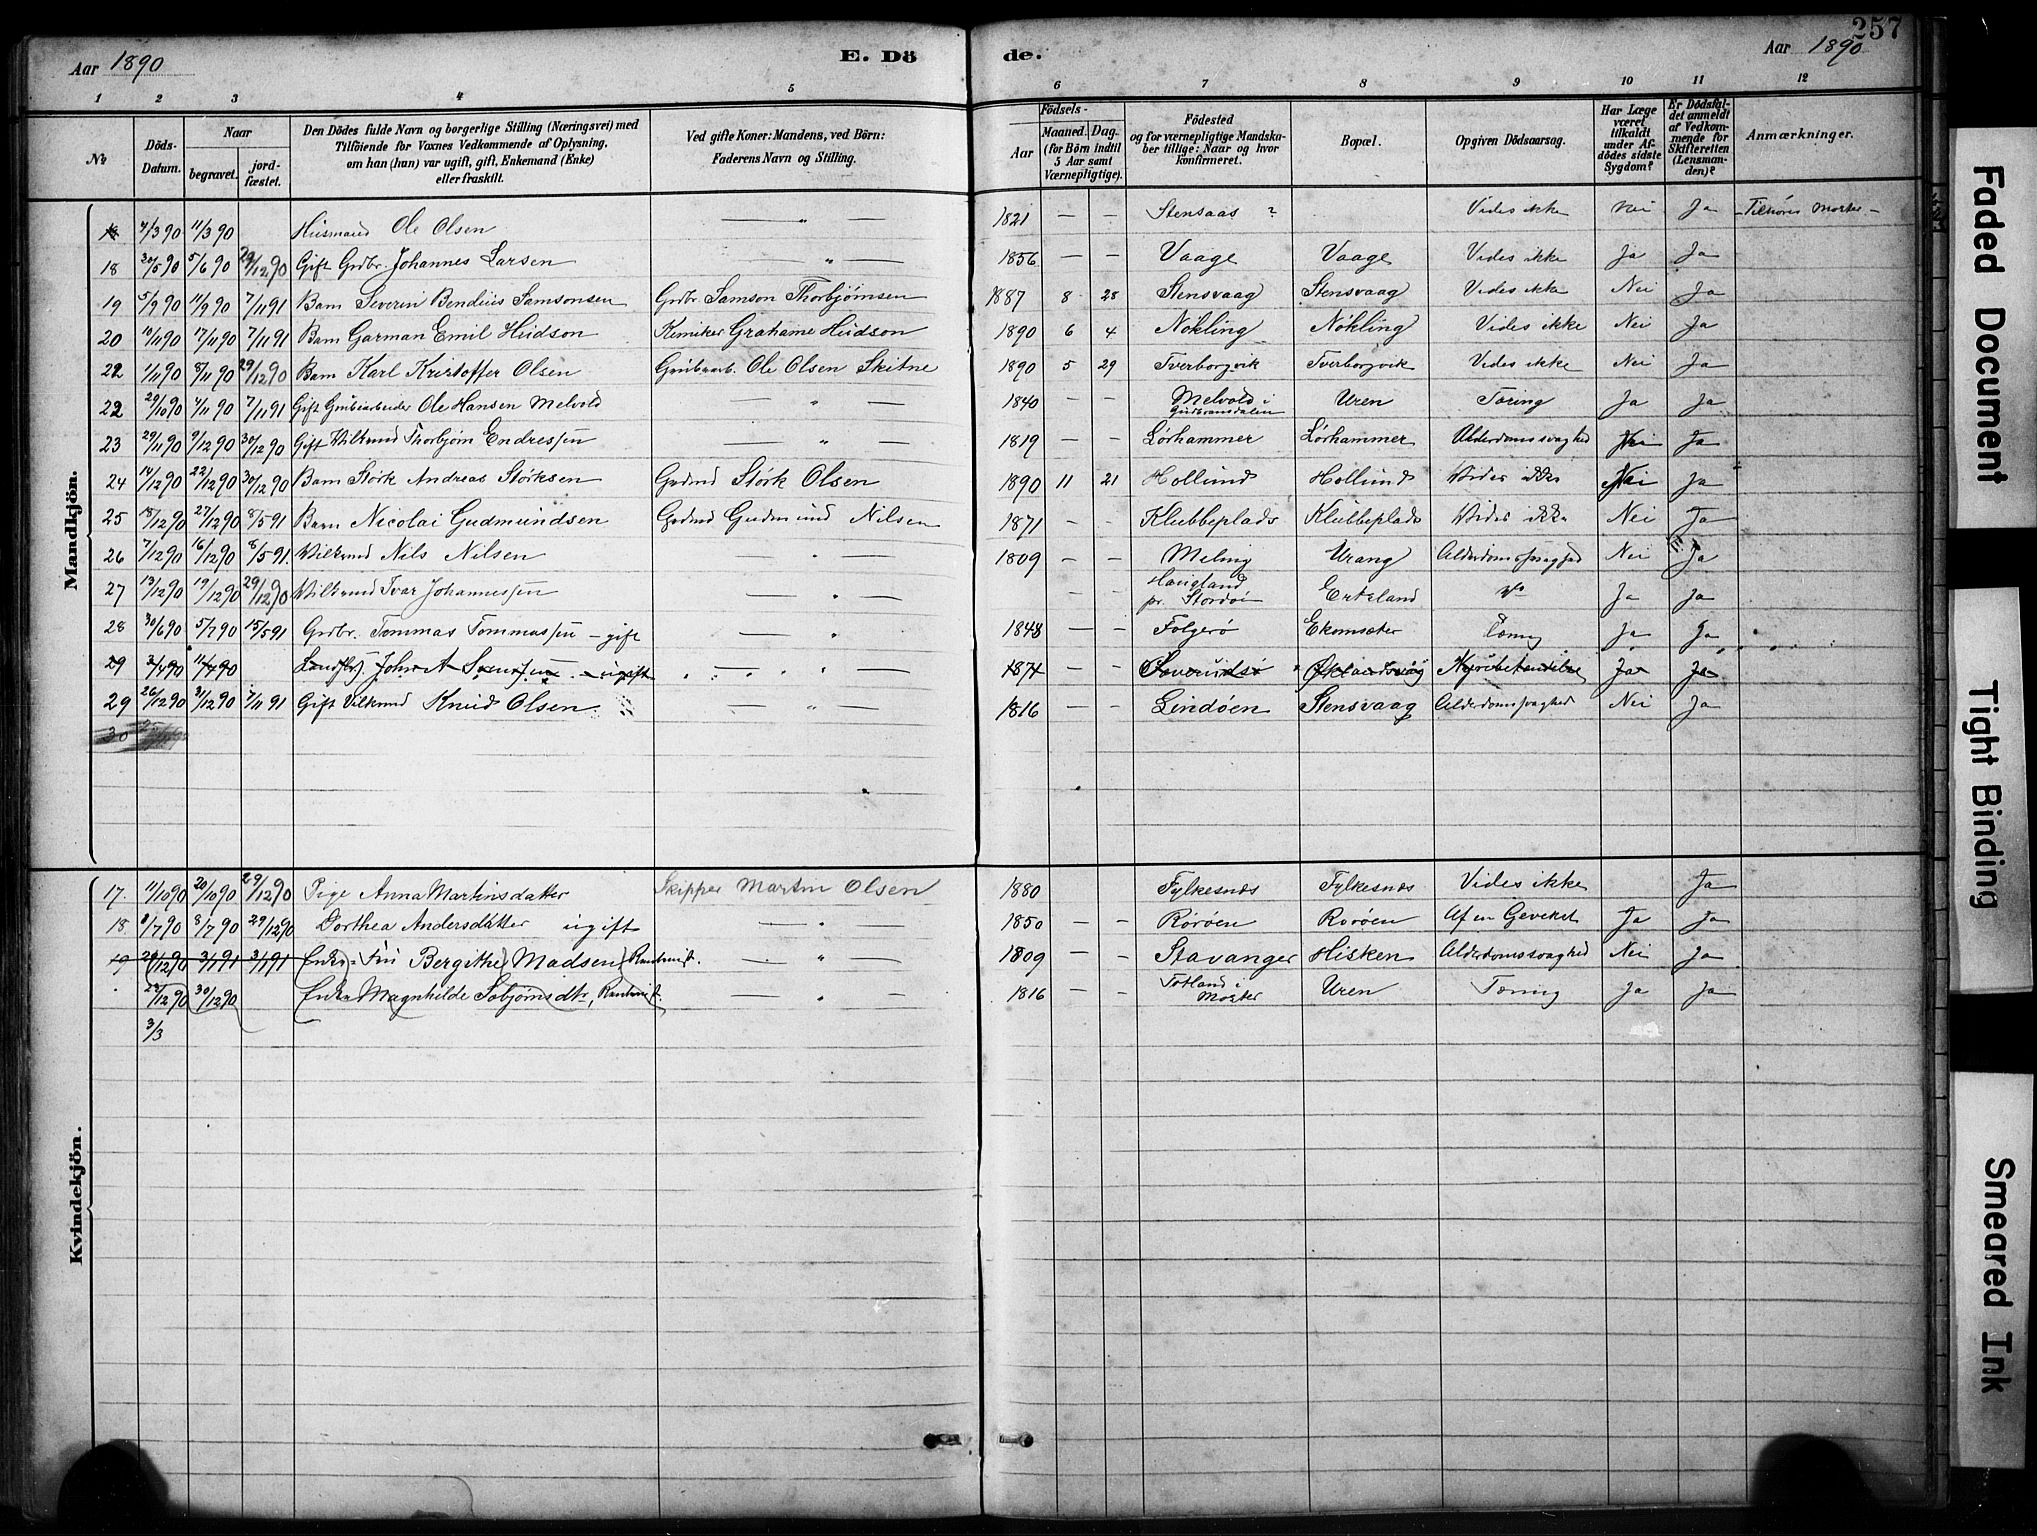 257
Aar 1890
E. Dö
de.
Aar 1890
1 2 3 4 5 6 7 8 9 10 11 12
No
Döds-Datum.
Naar
begravet.
jord-fæstet.
Den Dödes fulde Navn og borgerlige Stilling (Næringsvei) med
Tilföiende for Voxnes Vedkommende af Oplysning,
om han (hun) var ugift, gift, Enkemand (Enke)
eller fraskilt.
Ved gifte Koner: Mandens, ved Börn:
Faderens Navn og Stilling.
Födsels-
Aar
Maaned. Dag.
(for Börn indtil
5 Aar samt
Værnepligtige).
Födested
og for værnepligtige Mandska-
ber tillige: Naar og hvor
konfirmeret.
Bopæl.
Opgiven Dödsaarsag.
Har Læge
været
tilkaldt
under Af-
dödes sidste
Sygdom?
Er Dödsfal-
det anmeldt
af Vedkom-
mende for
Skifteretten
(Lensman-
den)?
Anmærkninger.
Mandkjön.
4/3 90 11/3 90 Husmand Ole Olsen — " — 1821 — — Stensaas ? Vides ikke Nei Ja
18 30/5 90 5/6 90 29/12 90 Gift Grdbr. Johannes Larsen — " — 1856 — — Vaage Vaage Vides ikke Ja Ja
19 5/9 90 11/9 90 7/11 91 Barn Severin Bendius Samsonsen Grdbr. Samson Thorbjørnsen 1887 8 28 Stensvaag Stensvaag Vides ikke Nei Ja
20 10/11 90 17/11 90 7/11 91 Barn Garman Emil Hudson Kemiker Grahame Hudson 1890 6 4 Nökling Nökling Vides ikke Nei Ja
22 1/11 90 8/11 90 29/12 90 Barn Karl Kristoffer Olsen Grubearb. Ole Olsen Skitne 1890 5 29 Tverborgvik Tverborgvik Vides ikke Nei Ja
22 29/10 90 4/11 90 7/11 91 Gift Grubearbeider Ole Hansen Melvold — " — 1840 — — Melvold i Gudbransdalen Uren Tæring Ja Ja
23 29/11 90 9/12 90 30/12 90 Gift Vilkmd Thorbjørn Endressen — " — 1819 — — Lørhammer Lørhammer Alderdomssvaghed Nei Ja
24 14/12 90 22/12 90 30/12 90 Barn Størk Andreas Størksen Grdmd Størk Olsen 1890 11 21 Hollund Hollund Vides ikke Nei Ja
25 18/12 90 27/12 90 8/5 91 Barn Nicolai Gudmundsen Grdmd Gudmund Nilsen 1871 - - Klubbeplads Klubbeplads Vides ikke Nei Ja
26 7/12 90 16/12 90 8/5 91. Vilkmd Nils Nilsen — " — 1809 — — Meling Urang Alderdomssvaghed Nei Ja
27 13/12 90 19/12 90 29/12 90 Vilkmd Ivar Johannessen — " — — — Haugland pr. Stordøen Ertsland Ja Ja
28 30/6 90 5/7 90 15/5 91 Grdbr. Tommas Tommassen - gift — " — 1848 — — Folgerø Ekornsæter Tæring Ja Ja
29 3/4 90 11/4 90 John A - ugift 1874 — — Ja Ja
29 26/12 90 31/12 90 7/11 91 Gift Vilkmd Knud Olsen — " — 1816 — — Lindøen Stensvaag Alderdomssvaghed Nei Ja
30
Kvindekjön.
17. 11/10 90 20/10 90 29/12 90 Pige Anna Martinsdatter Skipper Martin Olsen 1880 Fylkesnæs Fylkesnæs Vides ikke Ja
18. 1/7 90 8/7 90 29/12 90 Dorthea Andersdatter ugift — " — 1850 — — Rorøen Rorøen Af en Gevekst Ja Ja
19 /12 90 3/1 91 3/1 91 Enke Bergithe Madsen — " — 1809 — — Stavanger Hisken Alderdomssvaghed Nei Ja
/12 90 30/12 90 Enke Magnhilde Sobjørnsdtr, — " — 1816 — — Totland i Moster Uren Tæring Ja Ja
3/3
Faded Document
Tight Binding
Smeared Ink